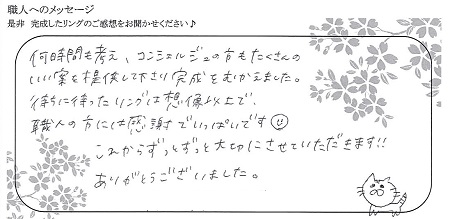 職人へのメッセージ
是非 完成したリングのご感想をお聞かせください♪
何時間も考え、コンシェルジュの方もたくさんの
いい案を提供して下さり完成をむかえました。
待ちに待ったリングは想像以上で、
職人の方には感謝でいっぱいです☺
これからずっとずっと大切にさせていただきます!!
ありがとうございました。